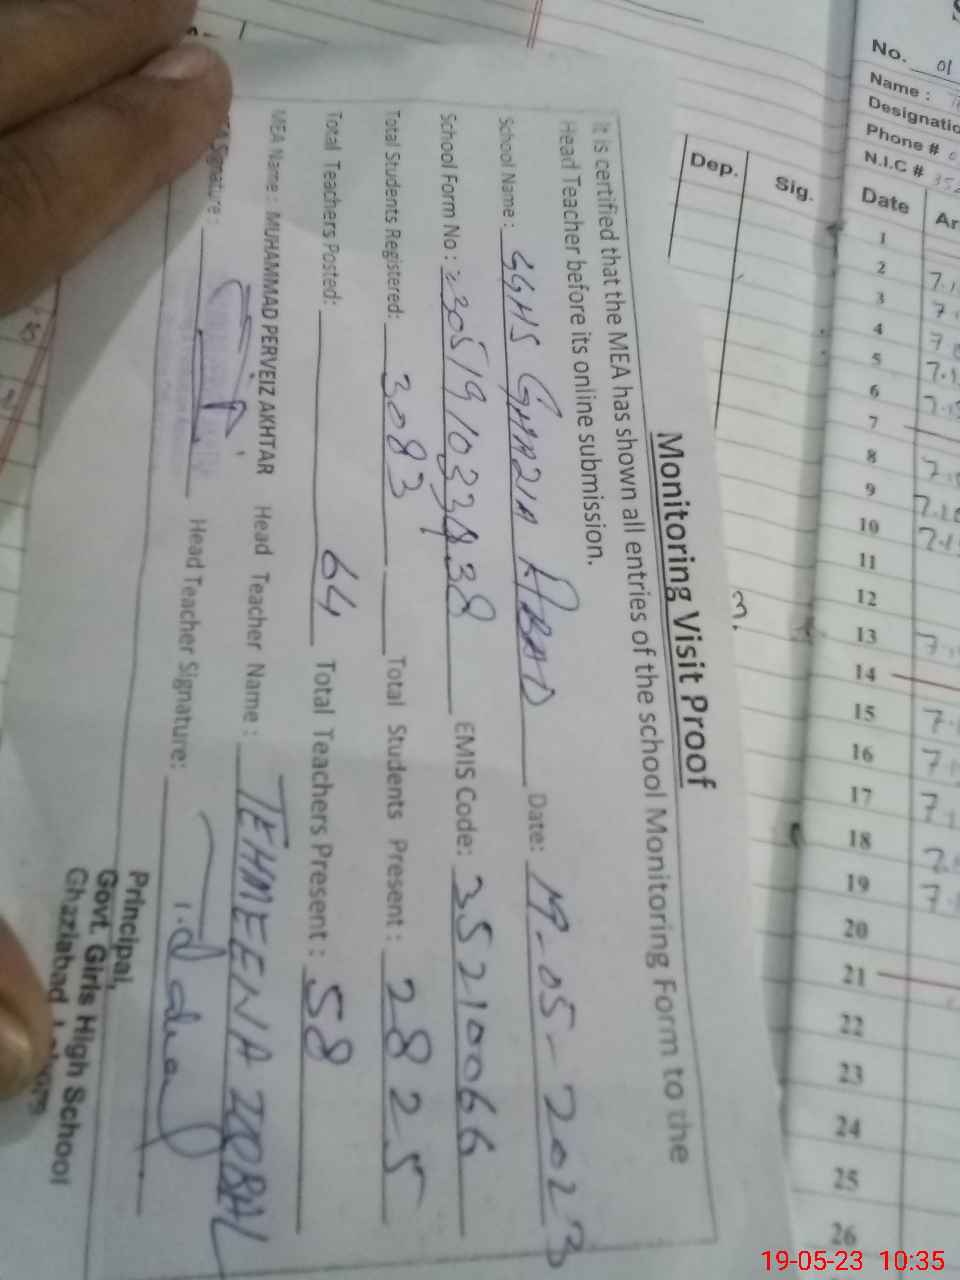 Monitoring Visit Proof
It is certified that the MEA has shown all entries of the school Monitoring Form to the
Head Teacher before its online submission.
School Name : GGHS GHAZIA ABAD Date: 19-05-2023
School Form No : EMIS Code: 35210066
Total Students Registered: 3083 Total Students Present : 2825
Total Teachers Posted: 64 Total Teachers Present : 58
MEA Name : MUHAMMAD PERVEIZ AKHTAR Head Teacher Name : TEHMEENA IQBAL
Signature : Head Teacher Signature:
Principal,
Govt. Girls High School
Ghaziabad
Dep. Sig.
3.
No. 01
Name :
Designatio
Phone #
N.I.C #
Date Ar
1
2
3
4
5
6
7
8
9
10
11
12
13
14
15
16
17
18
19
20
21
22
23
24
25
26
19-05-23 10:35